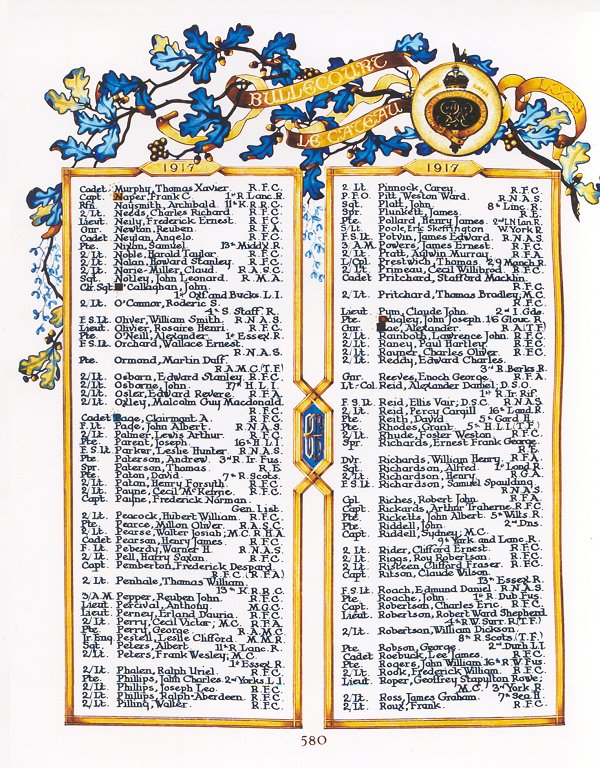 BULLECOURT
LE CATEAU
LOOS
1917
Cadet. Murphy, Thomas Xavier. R.F.C.
Capt. Naper, Frank C. 1st R. Lanc. R.
Rfn. Naysmith, Archibald. 11th K.R.R.C.
2/Lt. Needs, Charles Richard. R.F.C.
Lieut. Neily, Frederick Ernest. R.F.C.
Gnr. Newton, Reuben. R.F.A.
Cadet Neylan, Angelo. R.F.C.
Pte. Nixon, Samuel. 13th Middx. R.
2/Lt. Noble, Harold Taylor. R.F.C.
2/Lt. Nolan, Howard Stanley. R.F.C.
2/Lt. Norie-Miller, Claud. R.A.S.C.
Sgt. Notley, John Leonard. R.M.A.
Clr. Sgt. O'Callaghan, John.
1st Oxf. and Bucks. L.I.
2/Lt. O'Connor, Roderic S.
4th S. Staff. R.
F.S.Lt. Oliver, William Smith. R.N.A.S.
Lieut. Olivier, Rosaire Henri. R.F.C.
Pte. O'Neill, Alexander. 1st Essex. R.
F.S.Lt. Orchard, Wallace Ernest.
R.N.A.S.
Pte. Ormand, Martin Duff.
R.A.M.C. (T.F.)
2/Lt. Osborn, Edward Stanley. R.F.C.
2/Lt. Osborne, John. 17th H.L.I.
2/Lt. Osler, Edward Revere. R.F.A.
2/Lt. Oxley, Malcolm Guy Macdonald.
R.F.C.
Cadet Page, Clairmont A. R.F.C.
F.Lt. Page, John Albert. R.N.A.S.
2/Lt. Palmer, Lewis Arthur. R.F.C.
Pte. Parent, Joseph. 16th H.L.I.
F.S.Lt. Parker, Leslie Hunter. R.N.A.S.
Pte. Paterson, Andrew. 3rd R. Ir. Fus.
Spr. Paterson, Thomas. R.E.
Pte. Paton, David. 7th R. Scots.
2/Lt. Paton, Henry Forsyth. R.F.C.
2/Lt. Payne, Cecil McKerrie. R.F.C.
Capt. Payne, Frederick Norman.
Gen. List.
2/Lt. Peacock, Hibert William. R.F.C.
Pte. Pearce, Milton Oliver. R.A.S.C.
2/Lt. Pearse, Walter Josiah; M.C. R.H.A.
Cadet Pearson, Henry James. R.F.C.
F.Lt. Peberdy, Warner H. R.N.A.S.
2/Lt. Pell, Harry Saxon. R.F.C.
Capt. Pemberton, Frederick Despard.
R.F.C. (R.F.A.)
2/Lt. Penhale, Thomas William.
13th K.R.R.C.
3/A.M. Pepper, Reuben John. R.F.C.
Lieut. Percival, Anthony. M.G.C.
Lieut. Perney, Erland D'auria. R.F.C.
2/Lt. Perry, Cecil Victor; M.C. R.F.A.
Pte. Perry, George. R.A.M.C.
Ir. Eng. Pestell, Leslie Clifford. M.M.R.
Sgt. Peters, Albert. 11th R. Lanc. R.
2/Lt. Peters, Frank Wesley; M.C.
1st Essex R.
2/Lt. Phalen, Ralph Uriel. R.F.C.
Pte. Phillips, John Charles. 2nd Yorks. L.I.
2/Lt. Phillips, Joseph Leo. R.F.C.
2/Lt. Phillips, Ralph Aberdeen. R.F.C.
2/Lt. Pilling, Walter. R.F.C.
1917
2/Lt. Pinnock, Carey. R.F.C.
P.F.O. Pitt, Weston Ward. R.N.A.S.
Sgt. Platt, John. 8th Linc. R.
Spr. Plunkett, James. R.E.
Pte. Pollard, Henry James. 2nd L.N. Lan. R.
S/Lt. Poole, Eric Skeffington. W. York R.
F.S.Lt. Potvin, James Edward. R.N.A.S.
3.A.M. Powers, James Ernest. R.F.C.
2/Lt. Pratt, Audwin Murray. R.F.A.
L/Cpl. Prestwich, Thomas. 29 Manch. R.
2/Lt. Primeau, Cecil Willibrod. R.F.C.
Cadet Pritchard, Stafford Macklin.
R.F.C.
2/Lt. Pritchard, Thomas Bradley; M.C.
R.F.C.
Lieut. Pym, Claude John. 2nd I. Gds.
Pte. Quigley, John Joseph. 16 Glouc. R.
Gnr. Rae, Alexander. R.A. (T.F.)
2/Lt. Rainboth, Lawrence John. R.F.C.
2/Lt. Raney, Paul Hartley. R.F.C.
2/Lt. Rayner, Charles Oliver. R.F.C.
2/Lt. Reddy, Edward Charles.
3rd R. Berks R.
Gnr. Reeves, Enoch George. R.F.A.
Lt.-Col. Reid, Alexander Daniel; D.S.O.
1st R. Ir. Rif.
F.S.Lt. Reid, Ellis Vair; D.S.C. R.N.A.S.
2/Lt. Reid, Percy Cargill. 16th Lond. R.
Pte. Reith, David. 5th Gord. H.
Pte. Rhodes, Grant. 5th H.L.I. (T.F.)
2/Lt. Rhude, Foster Weston. R.F.C.
Spr. Richards, Ernest Frank George.
R.E.
Dvr. Richards, William Henry. R.F.A.
Sgt. Richardson, Alfred. 1st Lond. R.
2/Lt. Richardson, Henry. R.G.A.
F.S.Lt. Richardson, Samuel Spaulding.
R.N.A.S.
Cpl. Riches, Robert John. R.F.A.
Capt. Rickards, Arthur Traherne. R.F.C.
Pte. Ricketts, John Albert. 5th Wilts. R.
Pte. Riddell, John. 2nd Dns.
Capt. Riddell, Sydney; M.C.
9th York and Lanc. R.
2/Lt. Rider, Clifford Ernest. R.F.C.
2/Lt. Riggs, Roy Robertson. R.F.C.
2/Lt. Risteen, Clifford Fraser. R.F.C.
Capt. Ritson, Claude Wilson.
13th Essex R.
F.S.Lt. Roach, Edmund Daniel. R.N.A.S.
Pte. Roache, John. 1st R. Dub. Fus.
Capt. Robertson, Charles Eric. R.F.C.
Lieut. Robertson, Robert Ward Shepherd.
4th R.W. Surr. R. (T.F.)
2/Lt. Robertson, William Dickson.
8th R. Scots. (T.F.)
Pte. Robson, George. 2nd Durh. L.I.
Cadet Roebuck, Lee James. R.F.C.
Pte. Rogers, John William. 16th R.W. Fus.
2/Lt. Rook, Frederick William. R.F.C.
Lieut. Roper, Geoffrey Stapylton Rowe;
M.C. 3rd York. R.
2/Lt. Ross, James Graham. 7th Sea. H.
2/Lt. Roux, Frank. R.F.C.
580